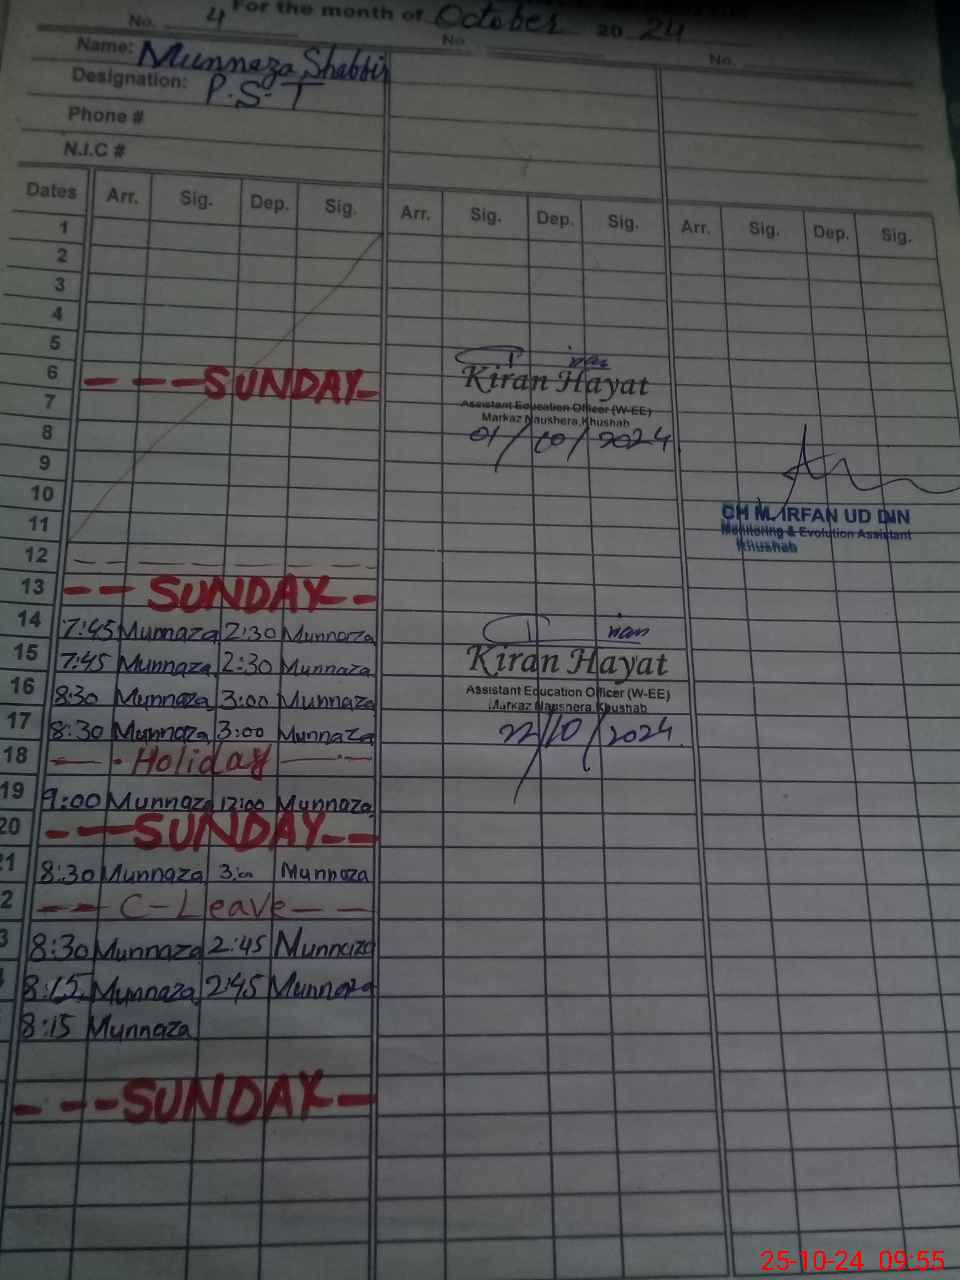 No. 4 For the month of October 2024
No. No.
Name: Munnaza Shabbir
Designation: P.S.T
Phone #
N.I.C #
Dates Arr. Sig. Dep. Sig. Arr. Sig. Dep. Sig. Arr. Sig. Dep. Sig.
1
2
3
4
5
6 - - - SUNDAY -
Kiran Hayat
7
Assistant Education Officer (W-EE)
Markaz Naushera, Khushab
8
01/10/2024
9
10
11
CH M. IRFAN UD DIN
Monitoring & Evolution Assistant
Khushab
12 - - - - - -
13 - - SUNDAY - -
14 7:45 Munnaza 2:30 Munnaza
15 7:45 Munnaza 2:30 Munnaza
Kiran Hayat
16 8:30 Munnaza 3:00 Munnaza
Assistant Education Officer (W-EE)
Markaz Naushera, Khushab
17 8:30 Munnaza 3:00 Munnaza
22/10/2024
18 - - Holiday - -
19 9:00 Munnaza 12:00 Munnaza
20 - - SUNDAY - -
21 8:30 Munnaza 3:00 Munnaza
2 - - C-Leave - -
3 8:30 Munnaza 2:45 Munnaza
8:15 Munnaza 2:45 Munnaza
8:15 Munnaza
- - - SUNDAY -
25-10-24 09:55